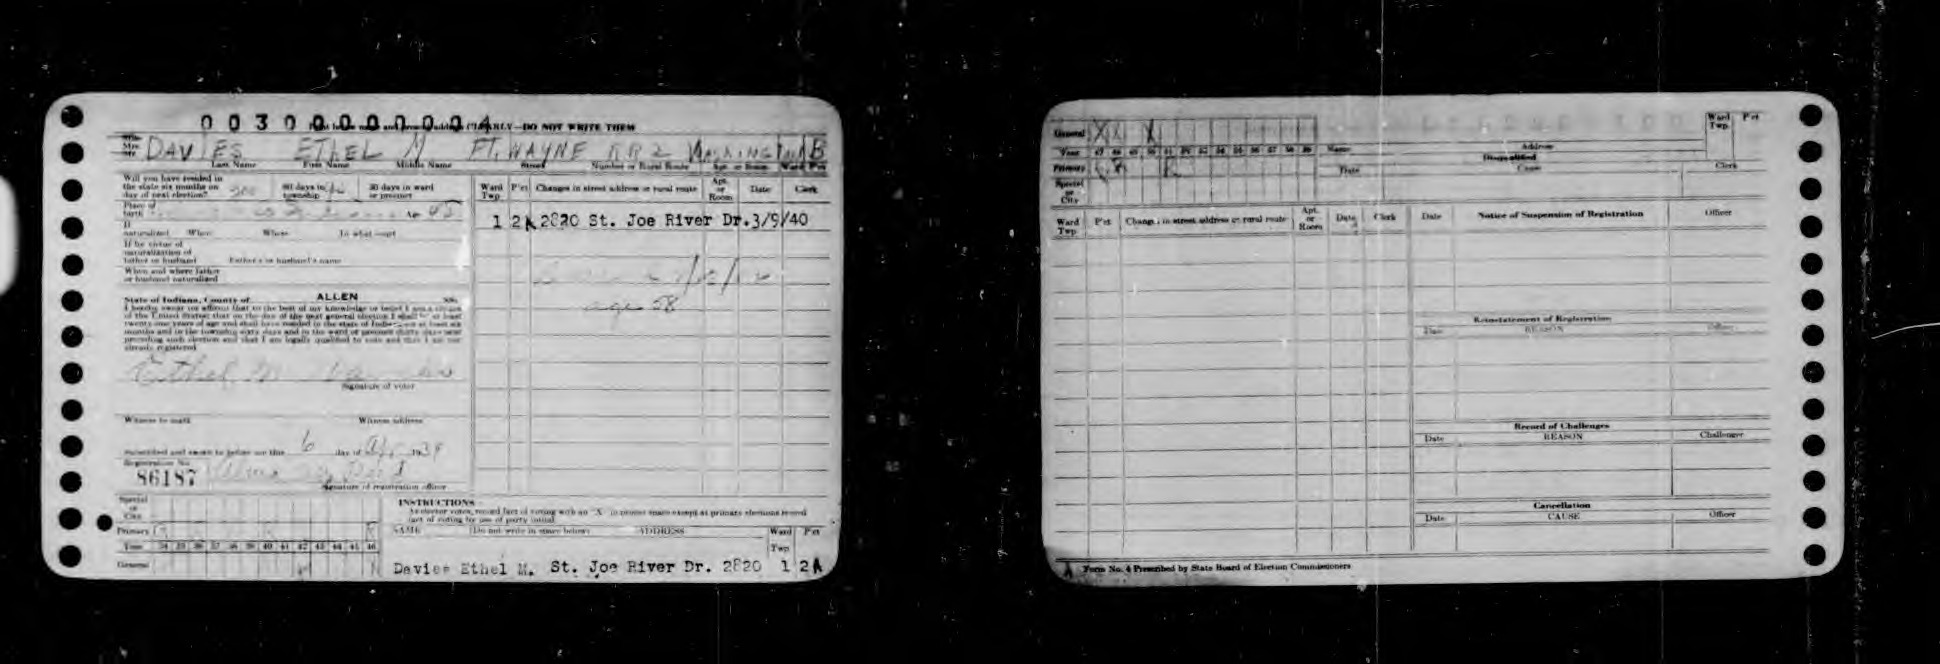 003000000004
CLEARLY—DO NOT WRITE THEM
DAVIES ETHEL M FT. WAYNE R.R 2 WASHINGTON B
Last Name First Name Middle Name Street Number or Rural Route Apt. or Room Ward Pct
Will you have resided in
the state six months on
day of next election?
60 days in
township
30 days in ward
or precinct
Place of
birth
If
naturalized When Where In what court
If by virtue of
naturalization of
father or husband Father's or husband's name
When and where father
or husband naturalized
State of Indiana, County of ALLEN
I hereby swear or affirm that to the best of my knowledge or belief I am a citizen
of the United States; that on the day of the next general election I shall be at least
twenty-one years of age and shall have resided in the state of Indiana at least six
months and in the township sixty days and in the ward or precinct thirty days next
preceding such election and that I am legally qualified to vote and that I am not
already registered
Ethel M. Davies
Signature of voter
Witness to mark Witness address
Subscribed and sworn to before me this 6 day of
Registration No.
86187
Signature of registration officer
Ward
Twp P'ct Changes in street address or rural route Apt.
or
Room Date Clerk
1 2A 2820 St. Joe River Dr. 3/9/40
age 58
Special
or
City
Primary
Year 34 35 36 37 38 39 40 41 42 43 44 45 46
General
INSTRUCTIONS
As elector votes, record fact of voting with an "X" in proper space except at primary elections record
fact of voting by use of party initial
NAME (Do not write in space below) ADDRESS Ward
Twp P'ct
Davies Ethel M. St. Joe River Dr. 2820 1 2A
General X X X
Year 47 48 49 50 51 52 53 54 55 56 57 58 59
Primary R R
Special
or
City
Ward
Twp. Pct
Name Address
Disqualified
Date Cause Clerk
Ward
Twp P'ct Change in street address or rural route Apt.
or
Room Date Clerk
Date Notice of Suspension of Registration Officer
Reinstatement of Registration
Date REASON Officer
Record of Challenges
Date REASON Challenger
Cancellation
Date CAUSE Officer
Form No. 4 Prescribed by State Board of Election Commissioners